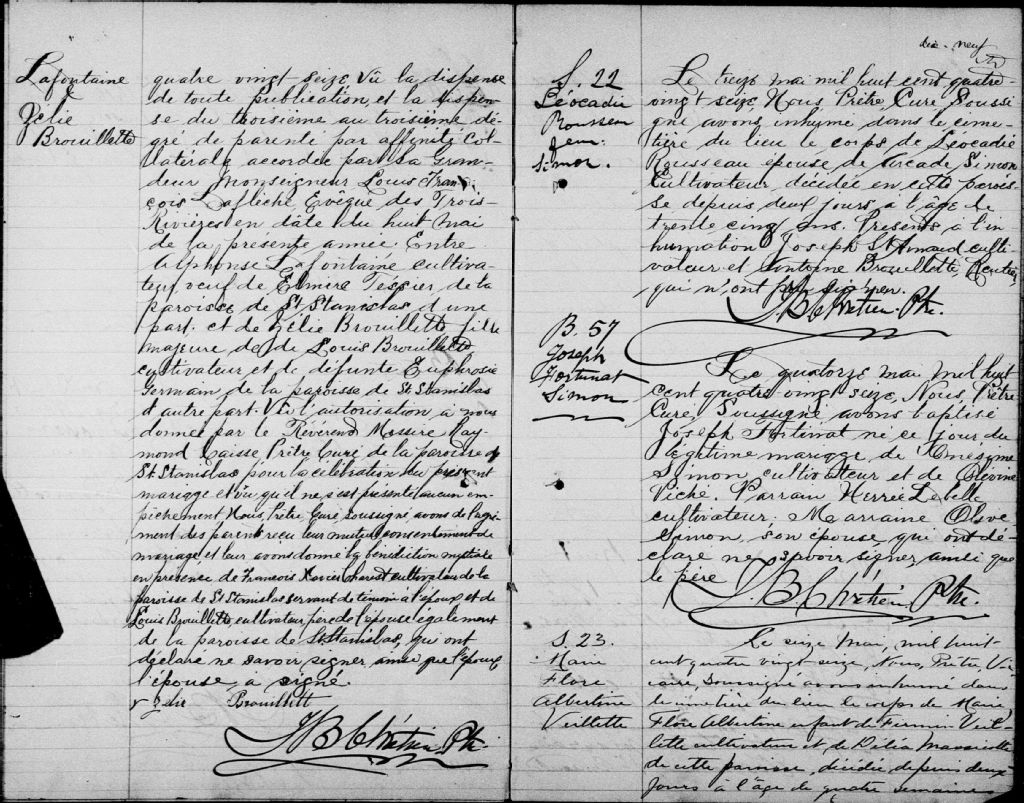 Lafontaine
&
Zélie
Brouillette
quatre vingt seize, Vû la dispense
de toute publication, et la dispen-
se du troisième au troisième de-
gré de parenté par affinité col-
latérale accordée par Sa Gran-
deur Monseigneur Louis Fran-
çois Laflèche Evêque des Trois-
Rivières en dâte du huit mai
de la présente année. Entre
Alphonse Lafontaine cultiva-
teur veuf de Elmire Tessier de la
paroisse de St Stanislas d'une
part. et de Zélie Brouillette fille
majeure de de Louis Brouillette
cultivateur et de défunte Euphrosie
Germain de la paroisse de St Stanislas
d'autre part. Vû l'autorisation à nous
donnée par le Révérend Messire Ray-
mond Caisse Prêtre Curé de la paroisse de
St Stanislas pour la célébration du présent
mariage et vu qu'il ne s'est présenté aucun em-
pêchement, Nous, Prêtre, Curé, soussigné, avons de l'agré-
ment des parents reçu leur mutuel consentement de
mariage, et leur avons donné la bénédiction nuptiale
en présence de François Xavier Charest cultivateur de la
paroisse de St Stanislas servant de témoin à l'époux et de
Louis Brouillette, cultivateur, père de l'épouse également
de la paroisse de St Stanislas, qui ont
déclaré ne savoir signer, ainsi que l'époux
l'épouse a signé.
Zélie Brouillett
J. B. Chrétien Ptr.
dix-neuf
S. 22
Léocadie
Rousseau
fem:
Simon.
Le treize mai mil huit cent quatre-
vingt seize, Nous, Prêtre, Curé Soussi
gné avons inhumé dans le cime-
tière du lieu le corps de Léocadie
Rousseau épouse de Arcade Simon
Cultivateur, décédée en cette parois-
se depuis deux jours à l'âge de
trente cinq ans. Présents à l'in
humation Joseph St Arnaud culti-
vateur et Antoine Brouillette, Rentier,
qui n'ont pu signer.
J. B. Chrétien Ptr.
B. 57
Joseph
Fortunat
Simon
Le quatorze mai mil huit
cent quatre vingt seize, Nous, Prêtre
Curé, Soussigné avons baptisé
Joseph Fortunat né ce jour du
légitime mariage de Onésime
Simon cultivateur et de
. Parrain
cultivateur. Marraine
Simon, son épouse, qui ont dé-
claré ne savoir signer ainsi que
le père
J. B. Chrétien Ptr.
S. 23.
Marie
Flore
Albertine
Veillette
Le seize Mai, mil huit
cent quatre vingt seize, Nous, Prêtre, Vi-
caire, Soussigné avons inhumé dans
le cimetière du lieu le corps de Marie
Flore Albertine enfant de Firmin Veil
lette cultivateur et de Délia Massicotte
de cette paroisse, décédée depuis deux
jours à l'âge de quatre semaines